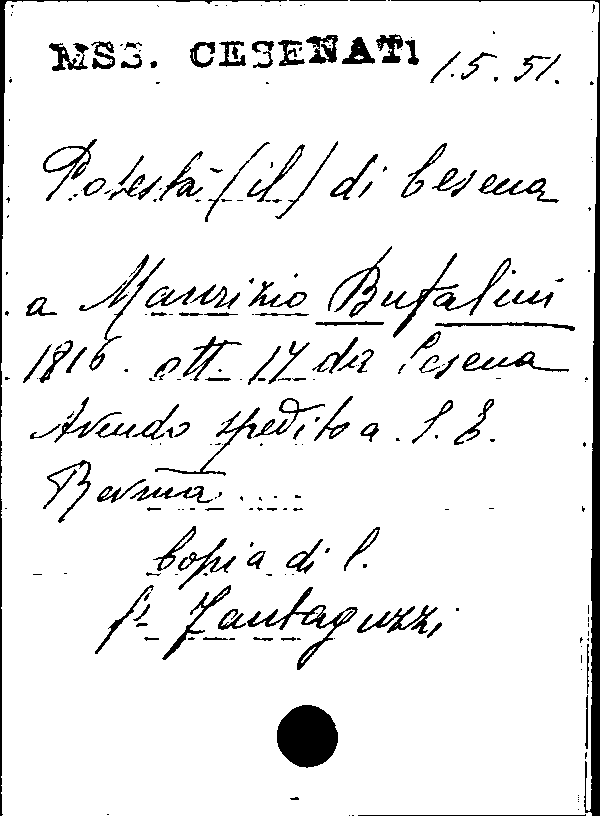 MSS. CESENATI 1.5.51.
Potestà (il) di Cesena
a Maurizio Bufalini
1816. ott. 17 da Cesena
Avendo spedito a S. E.
....
Copia di l.
fr Zantaguzzi